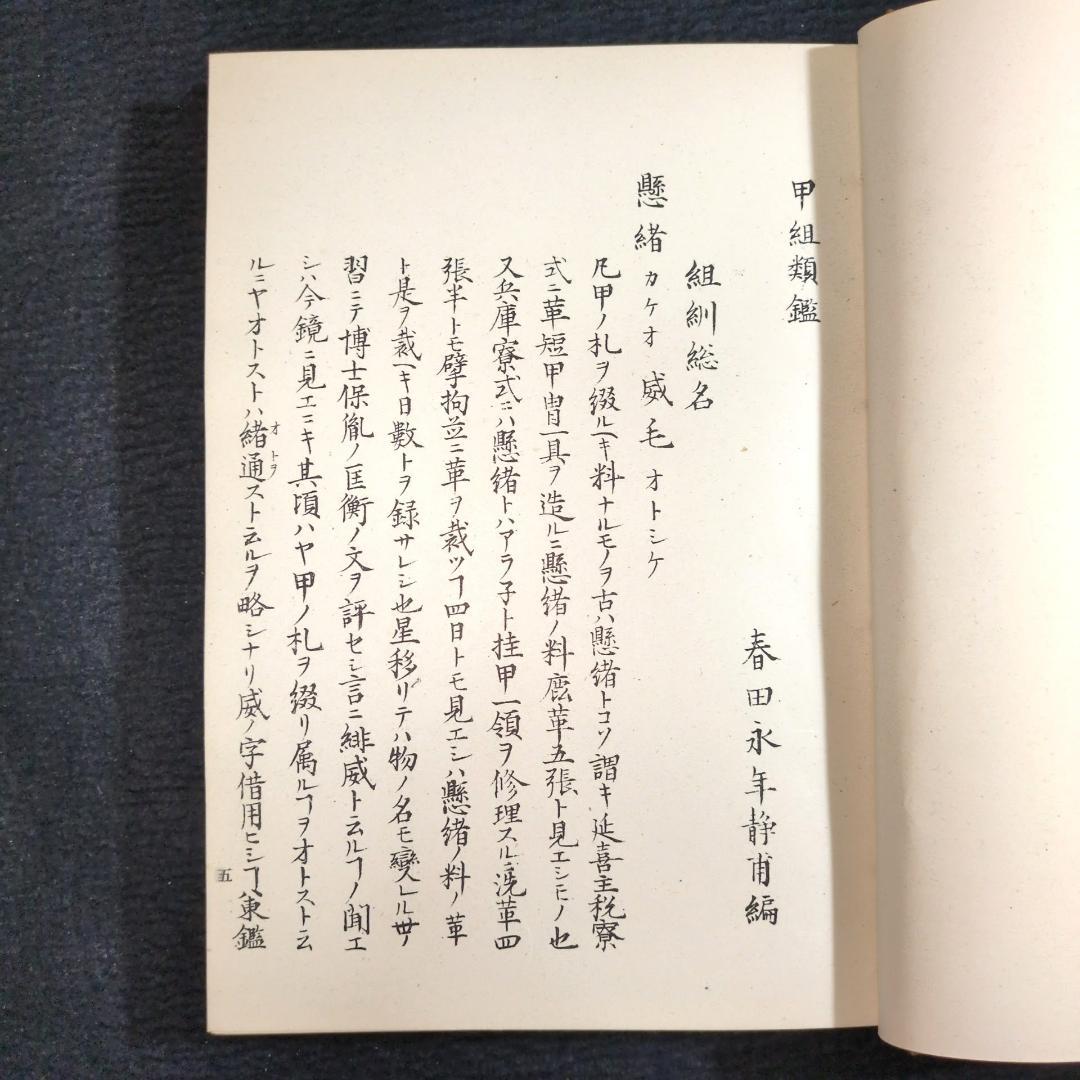 甲組類鑑
春田永年静甫編
組紃総名
懸緒カケオ威毛オトシケ
凡甲ノ札ヲ綴ルヘキ料ナルモノヲ古ハ懸緒トコソ謂キ延喜主税寮
式ニ革短甲冑一具ヲ造ルニ懸緒ノ料麃革五張ト見エシモノ也
又兵庫寮式ニハ懸緒トハアラ子ト挂甲一領ヲ修理スルニ洗革四
張半トモ擘拘並ニ革ヲ裁ツヿ四日トモ見エシハ懸緒ノ料ノ革
ト是ヲ裁ヘキ日數トヲ録サレシ也星移リテハ物ノ名モ變レル世ノ
習ニテ博士保胤ノ匡衡ノ文ヲ評セシ言ニ緋威ト云ルヿノ聞エ
シハ今鏡ニ見エニキ其頃ハヤ甲ノ札ヲ綴リ属ルヿヲオトスト云
ルニヤオトストハ緒通スト云ルヲ略シナリ威ノ字借用ヒシヿハ東鑑
オトヲ
五